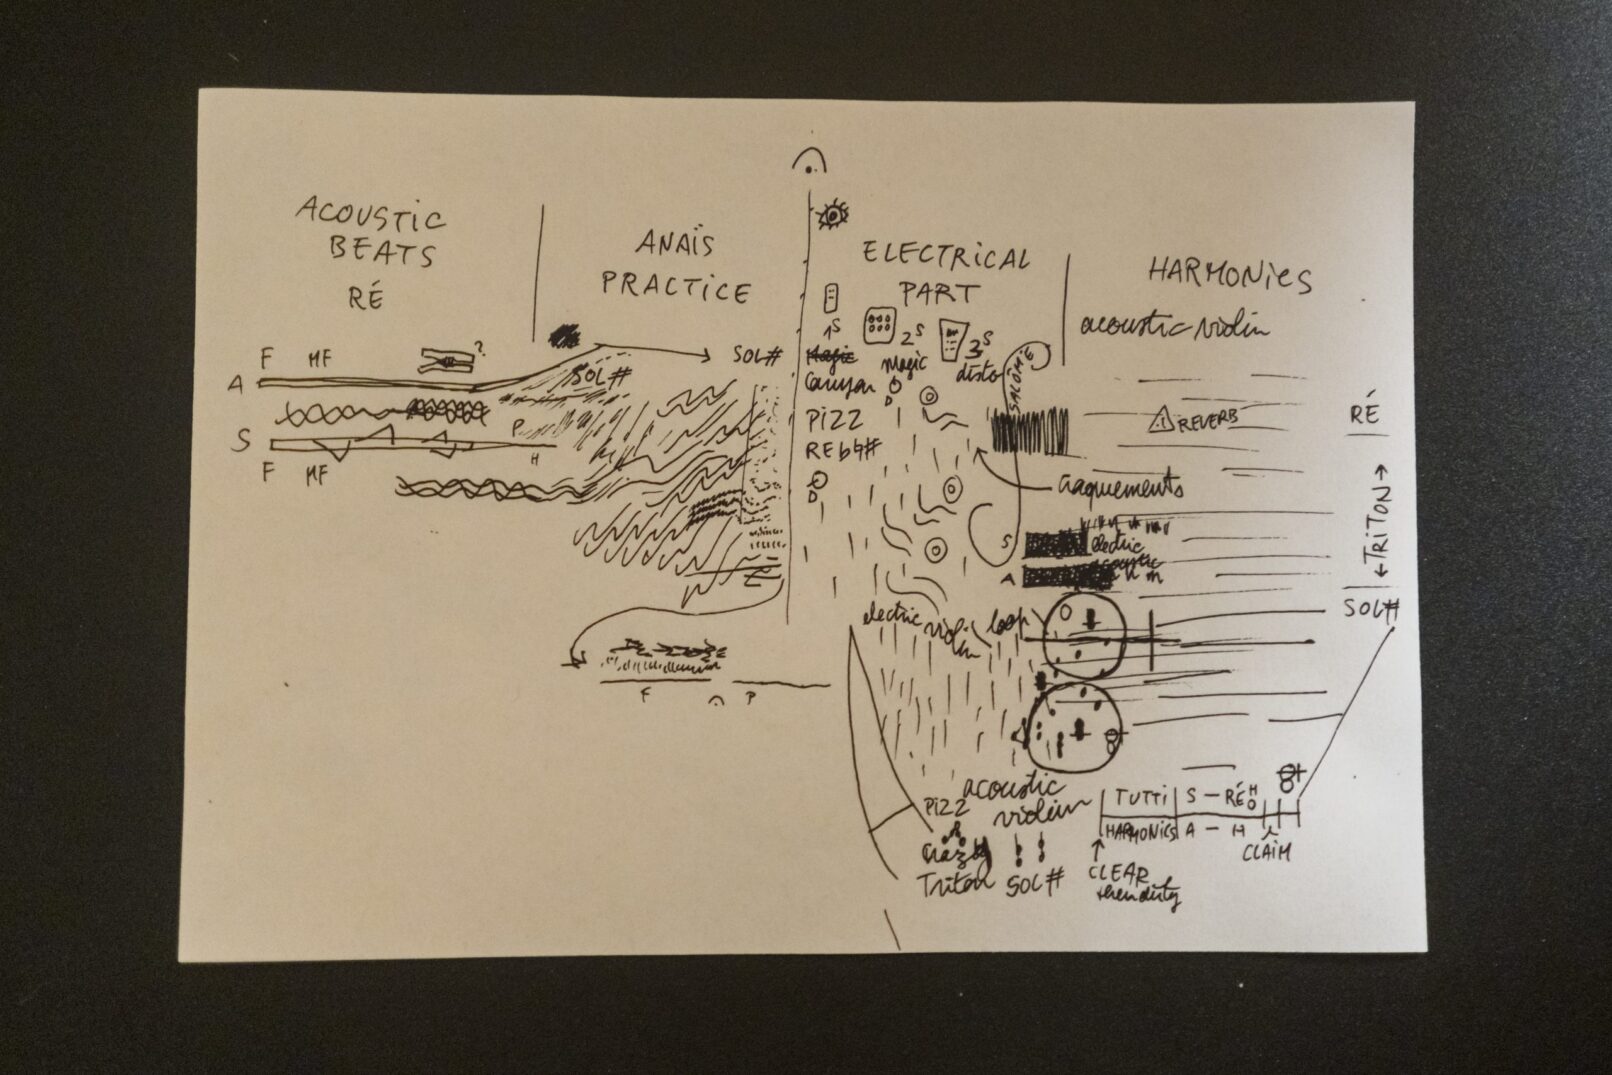 ACOUSTIC
BEATS
RÉ
F MF
?
A
S
F MF
P
H
ANAÏS
PRACTICE
SOL#
SOL#
F P
ELECTRICAL
PART
1S
2S
3S
Magic
Canyon
magic
disto
SALOMÉ
PIZZ
RE b♮#
craquements
S
electric
A
acoustic
electric violin loop
PIZZ
acoustic
violin
Triton SOL#
HARMONICS
acoustic violin
REVERB
RÉ
←TRITON→
SOL#
TUTTI S – RÉ
HARMONICS A – H
CLAIM
CLEAR
then dirty